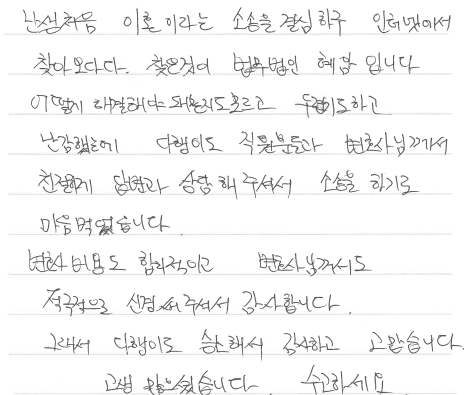 난생처음 이혼이라는 소송을 결심하구 인터넷에서
찾아 오다다. 찾은것이 법무법인 혜람 입니다
어떻게 해결해야 돼는지도모르고 두렵기도하고
난감했는데 다행이도 직원분들과 변호사님께서
친절하게 답변과 상담 해 주셔서 소송을 하기로
마음먹었습니다.
변호사비용도 합리적이고 변호사님께서도
적극적으로 신경써 주셔서 감사합니다.
그래서 다행이도 승소해서 감사하고 고맙습니다.
고생 많으셨습니다. 수고하세요